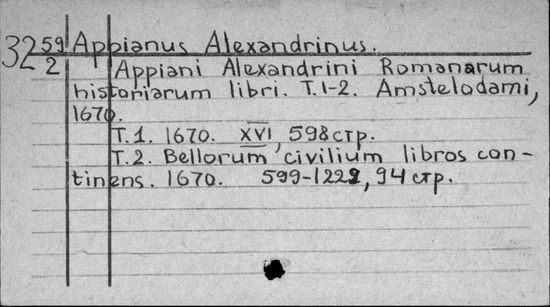 32 59/2 Appianus Alexandrinus.
Appiani Alexandrini Romanarum
historiarum libri. T.1-2. Amstelodami,
1670.
T.1. 1670. XVI, 598 стр.
T.2. Bellorum civilium libros con-
tinens. 1670. 599-1222, 94 стр.